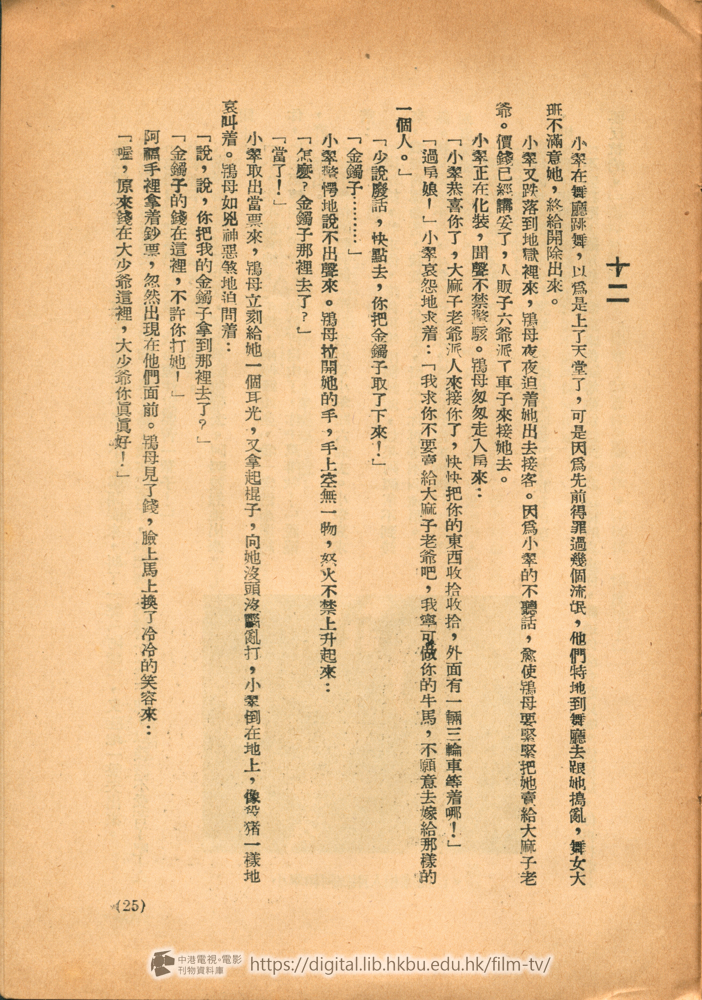 十二
小翠在舞廳跳舞，以爲是上了天堂了，可是因爲先前得罪過幾個流氓，他們特地到舞廳去跟她搗亂，舞女大
班不滿意她，終給開除出來。
小翠又跌落到地獄裡來，鴇母夜夜迫着她出去接客。因爲小翠的不聽話，愈使鴇母要緊緊把她賣給大麻子老
爺。價錢已經講妥了，人販子六爺派了車子來接她去。
小翠正在化裝，聞聲不禁驚駭。鴇母匆匆走入房來：
「小翠恭喜你了，大麻子老爺派人來接你了，快快把你的東西收拾收拾，外面有一輛三輪車等着哪！」
「過房娘！」小翠哀怨地求着：「我求你不要賣給大麻子老爺吧，我寧可做你的牛馬，不願意去嫁給那樣的
一個人。」
「少說廢話，快點去，你把金鐲子取了下來！」
「金鐲子…………」
小翠驚愕地說不出聲來。鴇母拉開她的手，手上空無一物，怒火不禁上升起來：
「怎麼？金鐲子那裡去了？」
「當了！」
小翠取出當票來，鴇母立刻給她一個耳光，又拿起棍子，向她沒頭沒腦亂打，小翠倒在地上，像殺猪一樣地
哀叫着。鴇母如兇神惡煞地迫問着：
「說，說，你把我的金鐲子拿到那裡去了？」
「金鐲子的錢在這裡，不許你打她！」
阿福手裡拿着鈔票，忽然出現在他們面前。鴇母見了錢，臉上馬上換了冷冷的笑容來：
「喔，原來錢在大少爺這裡，大少爺你眞眞好！」
(25)
中港電視·電影
刊物資料庫
https://digital.lib.hkbu.edu.hk/film-tv/